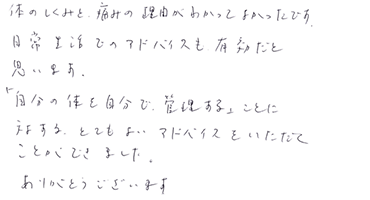 体のしくみと、痛みの理由がわかってよかったです。
日常生活でのアドバイスも有効だと
思います。
「自分の体を自分で、管理する」ことに
対する、とてもよいアドバイスをいただく
ことができました。
ありがとうございます